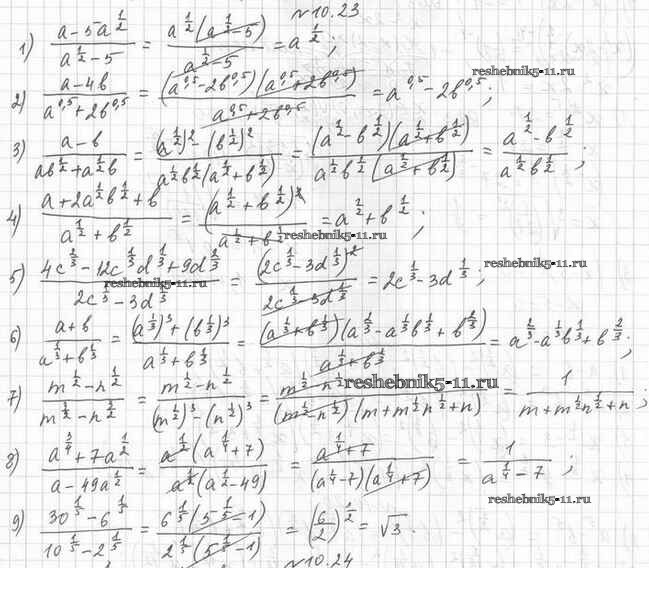 №10.23
1) (a-5a^(1/2))/(a^(1/2)-5) = (a^(1/2)(a^(1/2)-5))/(a^(1/2)-5) = a^(1/2);
reshebnik5-11.ru
2) (a-4b)/(a^0,5+2b^0,5) = ((a^0,5-2b^0,5)(a^0,5+2b^0,5))/(a^0,5+2b^0,5) = a^0,5-2b^0,5;
3) (a-b)/(ab^(1/2)+a^(1/2)b) = ((a^(1/2))^2-(b^(1/2))^2)/(a^(1/2)b^(1/2)(a^(1/2)+b^(1/2))) = ((a^(1/2)-b^(1/2))(a^(1/2)+b^(1/2)))/(a^(1/2)b^(1/2)(a^(1/2)+b^(1/2))) = (a^(1/2)-b^(1/2))/(a^(1/2)b^(1/2));
4) (a+2a^(1/2)b^(1/2)+b)/(a^(1/2)+b^(1/2)) = (a^(1/2)+b^(1/2))^2/(a^(1/2)+b^(1/2)) = a^(1/2)+b^(1/2);
reshebnik5-11.ru
5) (4c^(2/3)-12c^(1/3)d^(1/3)+9d^(2/3))/(2c^(1/3)-3d^(1/3)) = (2c^(1/3)-3d^(1/3))^2/(2c^(1/3)-3d^(1/3)) = 2c^(1/3)-3d^(1/3);
reshebnik5-11.ru
reshebnik5-11.ru
6) (a+b)/(a^(1/3)+b^(1/3)) = ((a^(1/3))^3+(b^(1/3))^3)/(a^(1/3)+b^(1/3)) = ((a^(1/3)+b^(1/3))(a^(2/3)-a^(1/3)b^(1/3)+b^(2/3)))/(a^(1/3)+b^(1/3)) = a^(2/3)-a^(1/3)b^(1/3)+b^(2/3);
7) (m^(1/2)-n^(1/2))/(m^(3/2)-n^(3/2)) = (m^(1/2)-n^(1/2))/((m^(1/2))^3-(n^(1/2))^3) = (m^(1/2)-n^(1/2))/((m^(1/2)-n^(1/2))(m+m^(1/2)n^(1/2)+n)) = 1/(m+m^(1/2)n^(1/2)+n);
reshebnik5-11.ru
8) (a^(3/4)+7a^(1/2))/(a-49a^(1/2)) = (a^(1/2)(a^(1/4)+7))/(a^(1/2)(a^(1/2)-49)) = (a^(1/4)+7)/((a^(1/4)-7)(a^(1/4)+7)) = 1/(a^(1/4)-7);
reshebnik5-11.ru
9) (30^(1/5)-6^(1/5))/(10^(1/5)-2^(1/5)) = (6^(1/5)(5^(1/5)-1))/(2^(1/5)(5^(1/5)-1)) = (6/2)^(1/2) = √3.
№10.24